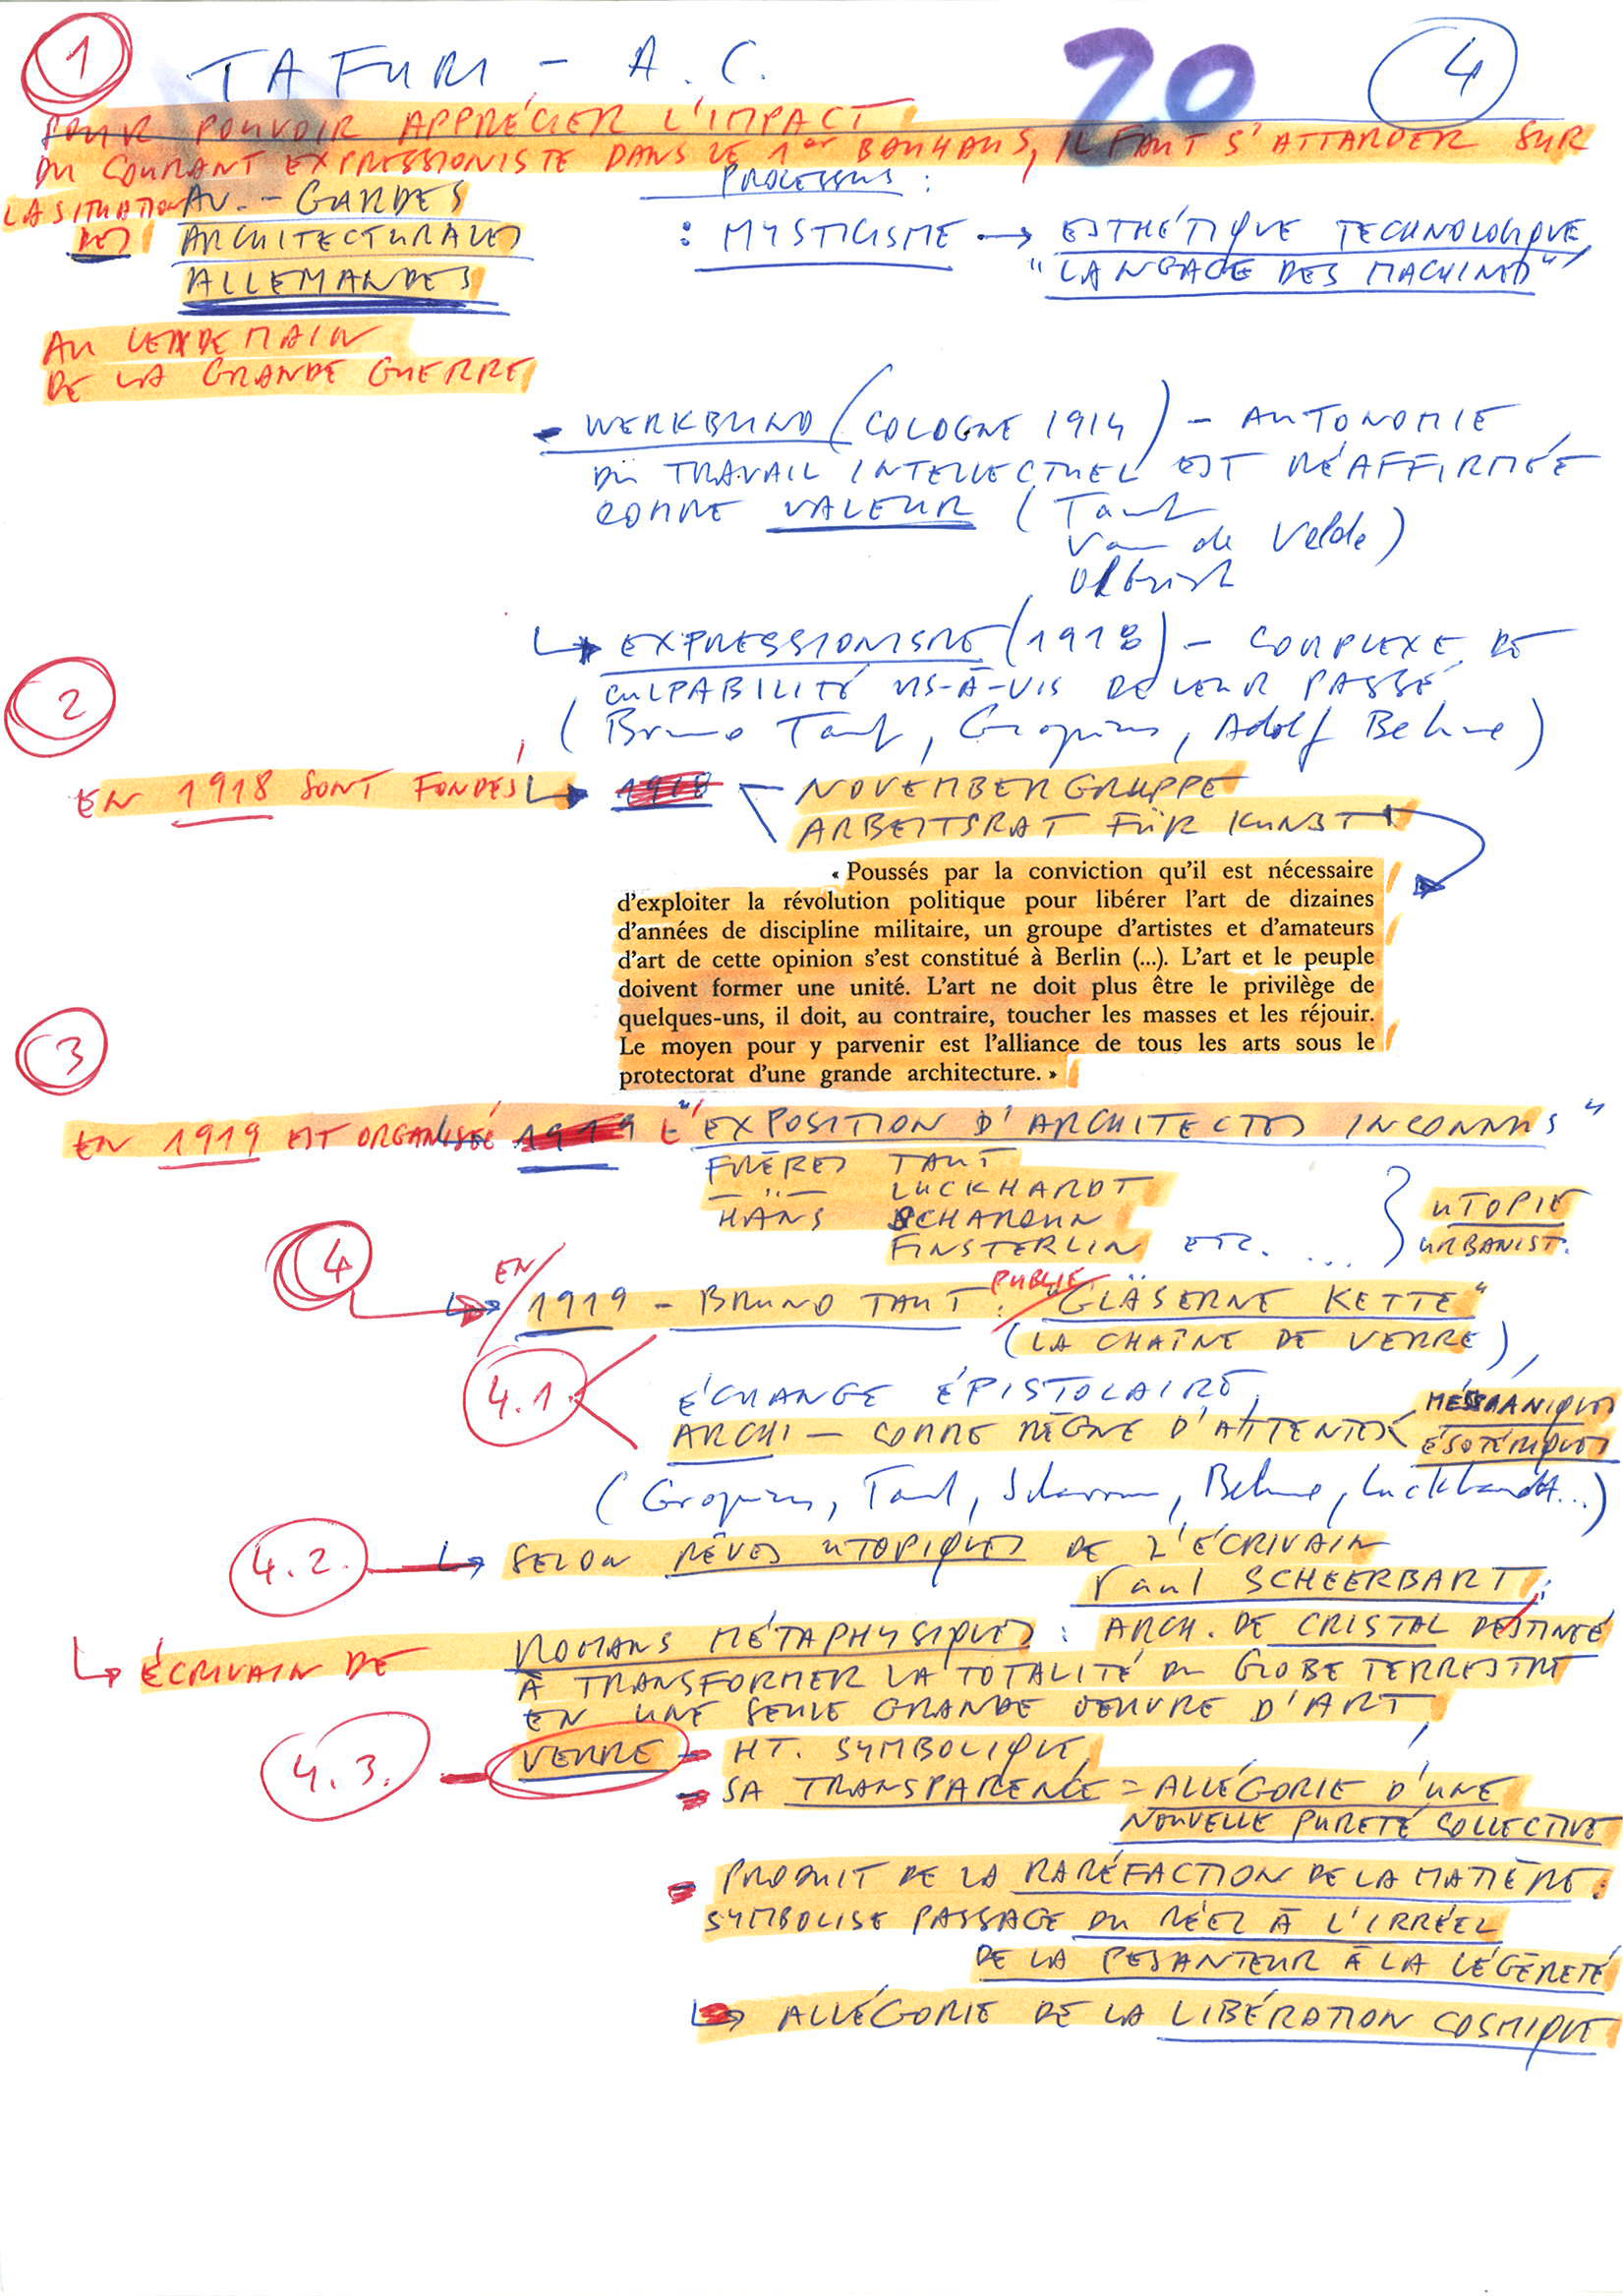 1 TAFURI - A.C. 20 4
POUR POUVOIR APPRÉCIER L'IMPACT
DU COURANT EXPRESSIONISTE DANS LE 1er BAUHAUS, IL FAUT S'ATTARDER SUR
LA SITUATION
DES
AV. - GARDES
ARCHITECTURALES
ALLEMANDES
PROCESSUS :
: MYSTICISME → ESTHÉTIQUE TECHNOLOGIQUE,
"LANGAGE DES MACHINES"
AU LENDEMAIN
DE LA GRANDE GUERRE
- WERKBUND (COLOGNE 1914) - AUTONOMIE
DU TRAVAIL INTELLECTUEL EST RÉAFFIRMÉE
COMME VALEUR (Taut
Van de Velde)
Olbrich
↳ EXPRESSIONISME (1918) - COMPLEXE DE
CULPABILITÉ VIS-À-VIS DE LEUR PASSÉ
(Bruno Taut, Gropius, Adolf Behne)
2
EN 1918 SONT FONDÉS ↳ 1918 NOVEMBERGRUPPE
ARBEITSRAT FÜR KUNST
« Poussés par la conviction qu'il est nécessaire
d'exploiter la révolution politique pour libérer l'art de dizaines
d'années de discipline militaire, un groupe d'artistes et d'amateurs
d'art de cette opinion s'est constitué à Berlin (...). L'art et le peuple
doivent former une unité. L'art ne doit plus être le privilège de
quelques-uns, il doit, au contraire, toucher les masses et les réjouir.
Le moyen pour y parvenir est l'alliance de tous les arts sous le
protectorat d'une grande architecture. »
3
EN 1919 EST ORGANISÉE 1919 L'"EXPOSITION D'ARCHITECTES INCONNUS"
FRÈRES TAUT
— " — LUCKHARDT
HANS SCHAROUN
FINSTERLIN ETC. ...
UTOPIE
URBANIST.
4
EN 1919 - BRUNO TAUT : PUBLIE "GLÄSERNE KETTE"
(LA CHAÎNE DE VERRE),
4.1.
ÉCHANGE ÉPISTOLAIRE,
ARCHI - COMME RÈGNE D'ATTENTES < MESSIANIQUES
ÉSOTÉRIQUES
(Gropius, Taut, Scharoun, Behne, Luckhardt...)
4.2. ↳ SELON RÊVES UTOPIQUES DE L'ÉCRIVAIN
Paul SCHEERBART :
↳ ÉCRIVAIN DE ROMANS MÉTAPHYSIQUES : ARCH. DE CRISTAL DESTINÉE
À TRANSFORMER LA TOTALITÉ DU GLOBE TERRESTRE
EN UNE SEULE GRANDE OEUVRE D'ART,
4.3. - VERRE - MT. SYMBOLIQUE,
- SA TRANSPARENCE = ALLÉGORIE D'UNE
NOUVELLE PURETÉ COLLECTIVE
- PRODUIT DE LA RARÉFACTION DE LA MATIÈRE :
SYMBOLISE PASSAGE DU RÉEL À L'IRRÉEL
DE LA PESANTEUR À LA LÉGÈRETÉ
↳ ALLÉGORIE DE LA LIBÉRATION COSMIQUE